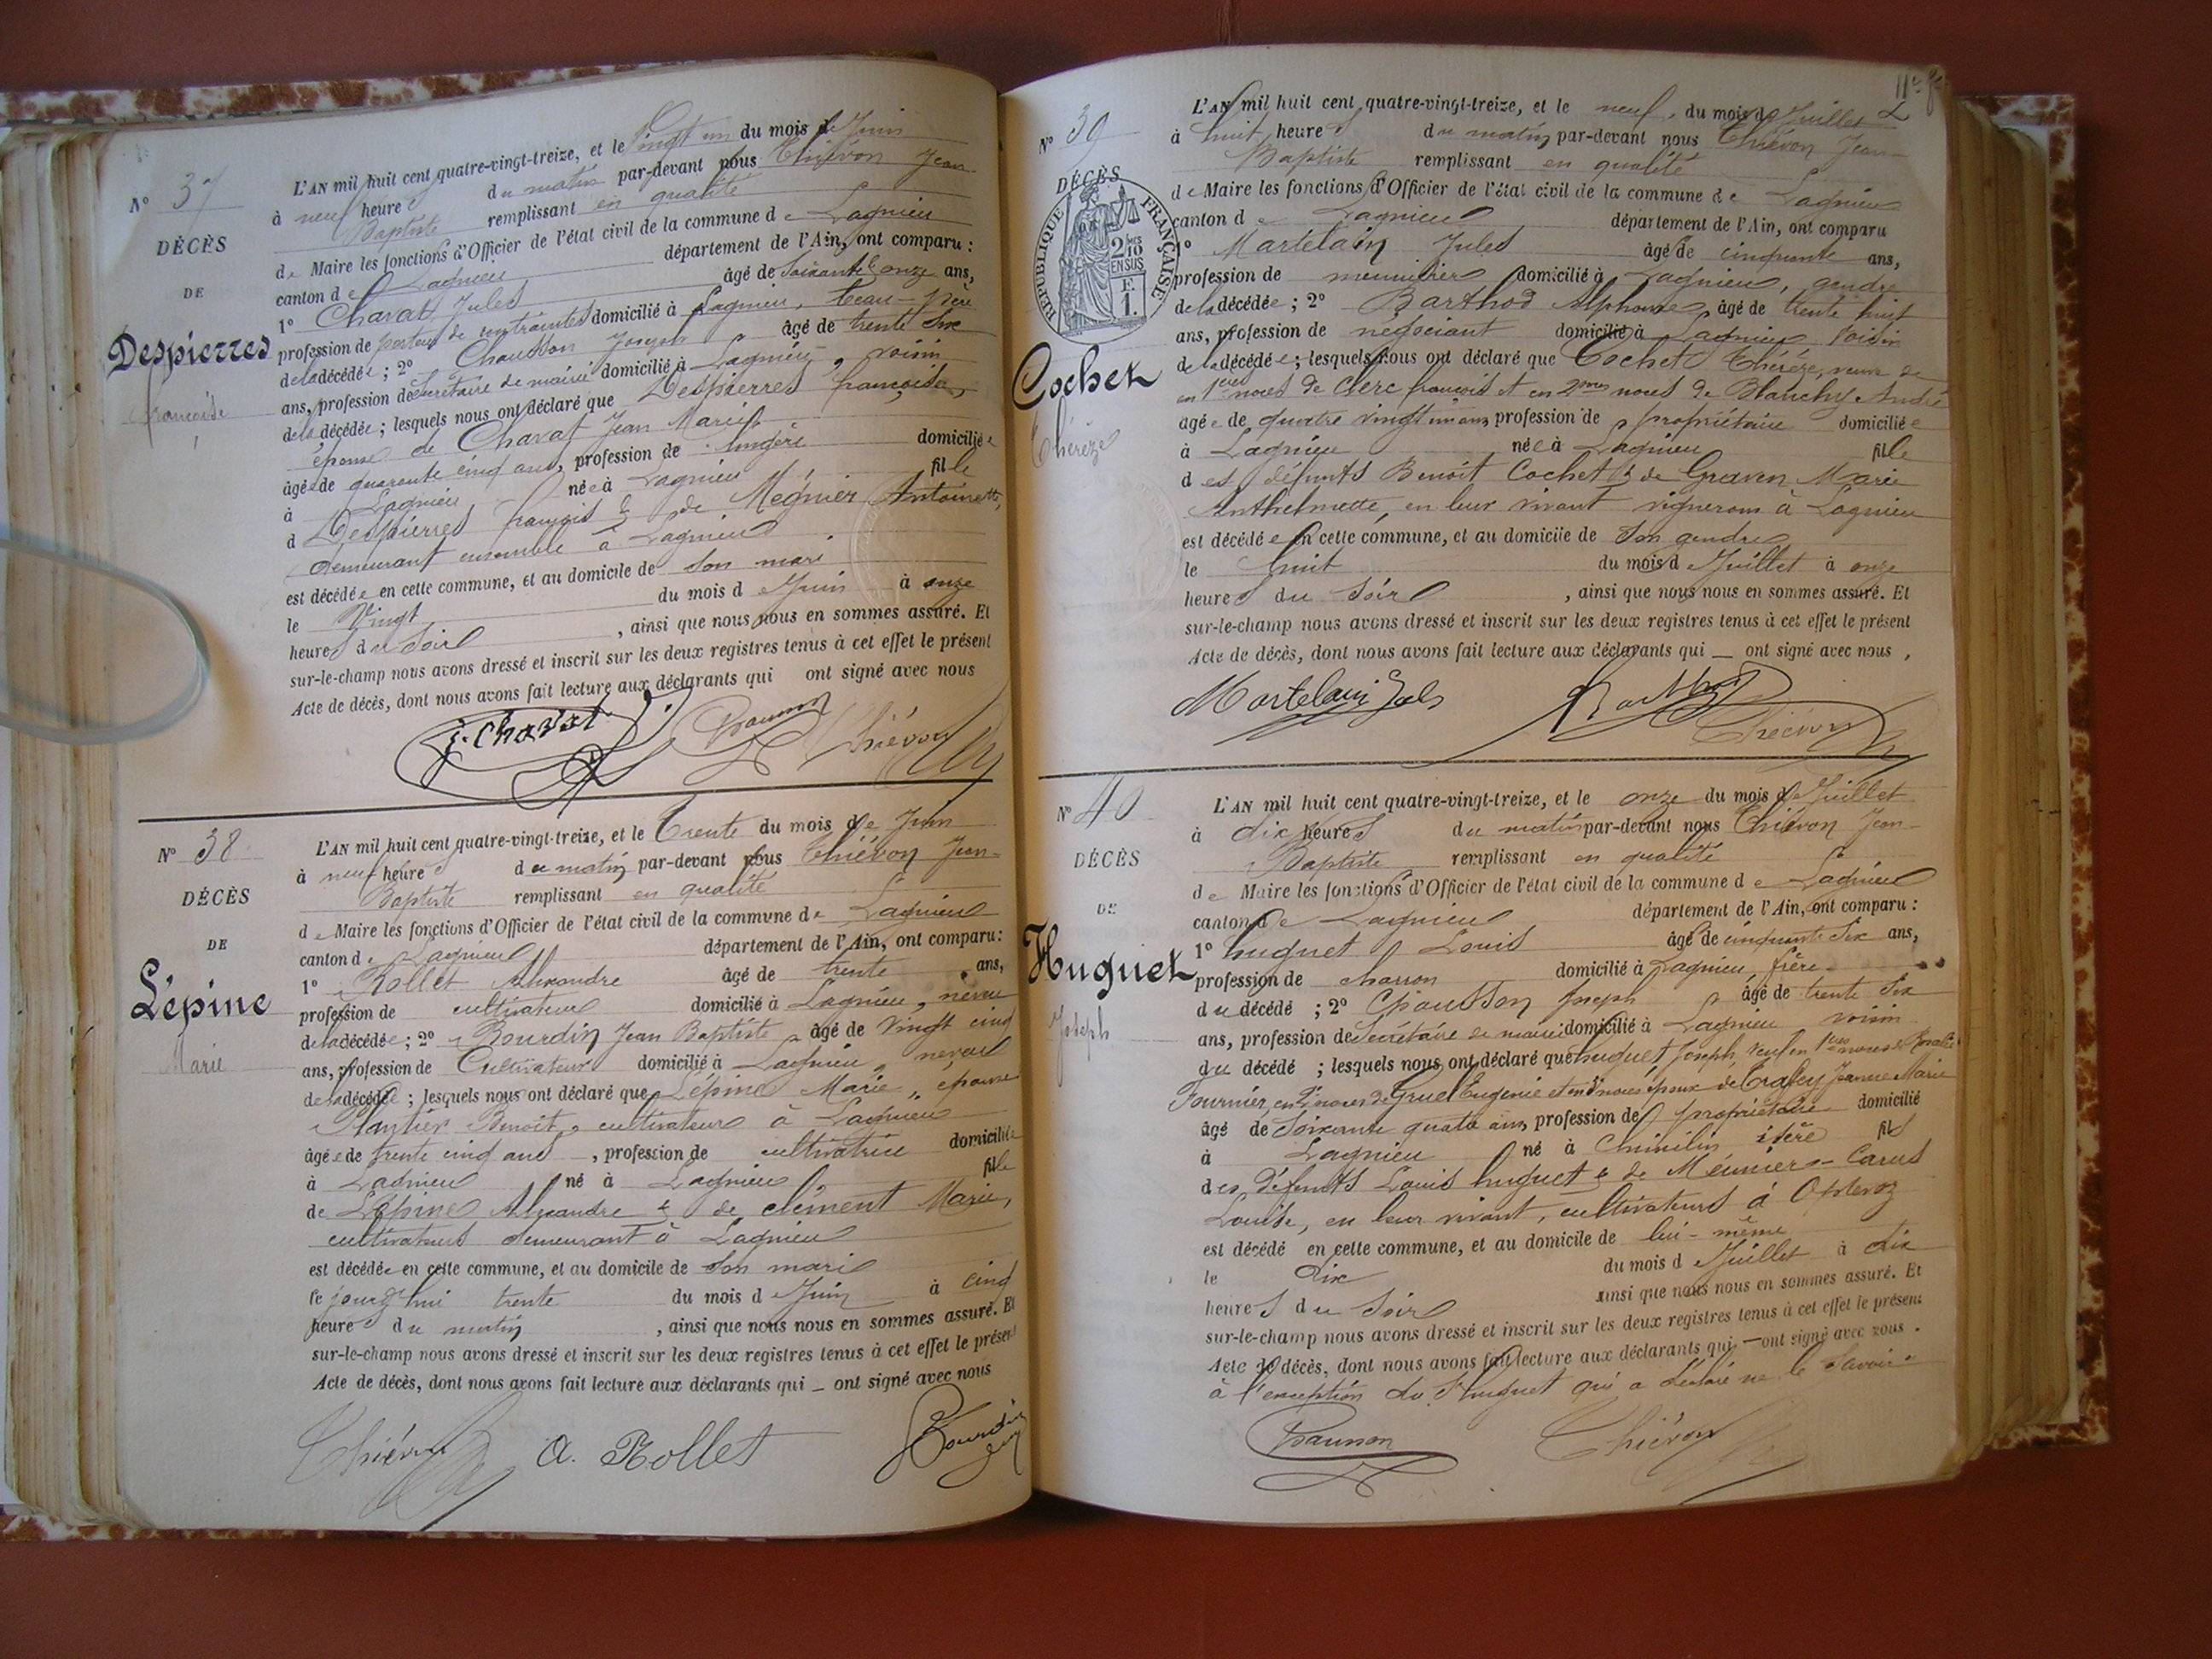 N° 37
DÉCÈS
DE
Despierres
Françoise
L'AN mil huit cent quatre-vingt-treize, et le Vingt un du mois de Juin
à neuf heures du matin par-devant nous Thiévon Jean-
Baptiste remplissant en qualité
de Maire les fonctions d'Officier de l'état civil de la commune de Lagnieu
canton de Lagnieu département de l'Ain, ont comparu :
1° Charat Jules âgé de soixante onze ans,
profession de porteur de contraintes domicilié à Lagnieu, beau-père
de la décédée ; 2° Chausson Joseph âgé de trente six
ans, profession de Secrétaire de mairie domicilié à Lagnieu, voisin
de la décédée ; lesquels nous ont déclaré que Despierres françoise,
épouse de Charat Jean Marie
âgée de quarante cinq ans, profession de lingère domiciliée
à Lagnieu née à Lagnieu fille
d Despierres françois & de Megnier Antoinette,
demeurant ensemble à Lagnieu
est décédée en cette commune, et au domicile de son mari
le Vingt du mois de Juin à onze
heures du soir , ainsi que nous nous en sommes assuré. Et
sur-le-champ nous avons dressé et inscrit sur les deux registres tenus à cet effet le présent
Acte de décès, dont nous avons fait lecture aux déclarants qui ont signé avec nous
J. Charat Chausson Thiévon
N° 38
DÉCÈS
DE
Lépine
Marie
L'AN mil huit cent quatre-vingt-treize, et le Trente du mois de Juin
à neuf heures du matin par-devant nous Thiévon Jean-
Baptiste remplissant en qualité
de Maire les fonctions d'Officier de l'état civil de la commune de Lagnieu
canton de Lagnieu département de l'Ain, ont comparu :
1° Rollet Alexandre âgé de trente ans,
profession de cultivateur domicilié à Lagnieu, neveu
de la décédée ; 2° Bourdin Jean Baptiste âgé de Vingt cinq
ans, profession de Cultivateur domicilié à Lagnieu, neveu
de la décédée ; lesquels nous ont déclaré que Lépine Marie, épouse
Plantier Benoit, cultivateur à Lagnieu
âgée de trente cinq ans , profession de cultivatrice domiciliée
à Lagnieu né à Lagnieu fille
de Lépine Alexandre & de clément Marie,
cultivateurs demeurant à Lagnieu
est décédée en cette commune, et au domicile de son mari
le jourd'hui trente du mois de Juin à cinq
heures du matin , ainsi que nous nous en sommes assuré. Et
sur-le-champ nous avons dressé et inscrit sur les deux registres tenus à cet effet le présent
Acte de décès, dont nous avons fait lecture aux déclarants qui _ ont signé avec nous
Thiévon A. Rollet Bourdin
N° 39
DÉCÈS
RÉPUBLIQUE FRANÇAISE
2/10
EN SUS
E
1.
Cochet
Thérèze
L'AN mil huit cent quatre-vingt-treize, et le neuf du mois de Juillet
à huit heures du matin par-devant nous Thiévon Jean-
Baptiste remplissant en qualité
de Maire les fonctions d'Officier de l'état civil de la commune de Lagnieu
canton de Lagnieu département de l'Ain, ont comparu
1° Martelain Jules âgé de cinquante ans,
profession de menuisier domicilié à Lagnieu, gendre
de la décédée ; 2° Barthod Alphonse âgé de trente huit
ans, profession de négociant domicilié à Lagnieu Voisin
de la décédée ; lesquels nous ont déclaré que Cochet Thérèze, veuve de
en 1ères noces de Clerc françois et en 2mes noces de Blanchy André
âgée de quatre vingt un ans profession de propriétaire domiciliée
à Lagnieu née à Lagnieu fille
des défunts Benoît Cochet & de Graven Marie
Anthelmette, en leur vivant vignerons à Lagnieu
est décédée en cette commune, et au domicile de son gendre
le huit du mois de Juillet à onze
heures du soir , ainsi que nous nous en sommes assuré. Et
sur-le-champ nous avons dressé et inscrit sur les deux registres tenus à cet effet le présent
Acte de décès, dont nous avons fait lecture aux déclarants qui _ ont signé avec nous ,
Martelain Jules Barthod Thiévon
N° 40
DÉCÈS
DE
Huguet
Joseph
L'AN mil huit cent quatre-vingt-treize, et le onze du mois de Juillet
à dix heures du matin par-devant nous Thiévon Jean-
Baptiste remplissant en qualité
de Maire les fonctions d'Officier de l'état civil de la commune de Lagnieu
canton de Lagnieu département de l'Ain, ont comparu :
1° huguet Louis âgé de cinquante six ans,
profession de charron domicilié à Lagnieu, frère
du décédé ; 2° Chausson Joseph âgé de trente six
ans, profession de Secrétaire de mairie domicilié à Lagnieu voisin
du décédé ; lesquels nous ont déclaré que huguet Joseph, veuf en 1ères noces de Rosalie
Fournier, en 2es noces de Gruel Eugénie et en 3es noces époux de Jeanne Marie
âgé de soixante quatre ans, profession de propriétaire domicilié
à Lagnieu né à Chimilin isère fils
des défunts Louis huguet & de Meunier-Carus
Louise, en leur vivant, cultivateurs à Optevoz
est décédé en cette commune, et au domicile de lui-même
le dix du mois de Juillet à dix
heures du soir ainsi que nous nous en sommes assuré. Et
sur-le-champ nous avons dressé et inscrit sur les deux registres tenus à cet effet le présent
Acte de décès, dont nous avons fait lecture aux déclarants qui — ont signé avec nous .
à l'exception du S. huguet qui a déclaré ne le savoir
Chausson Thiévon